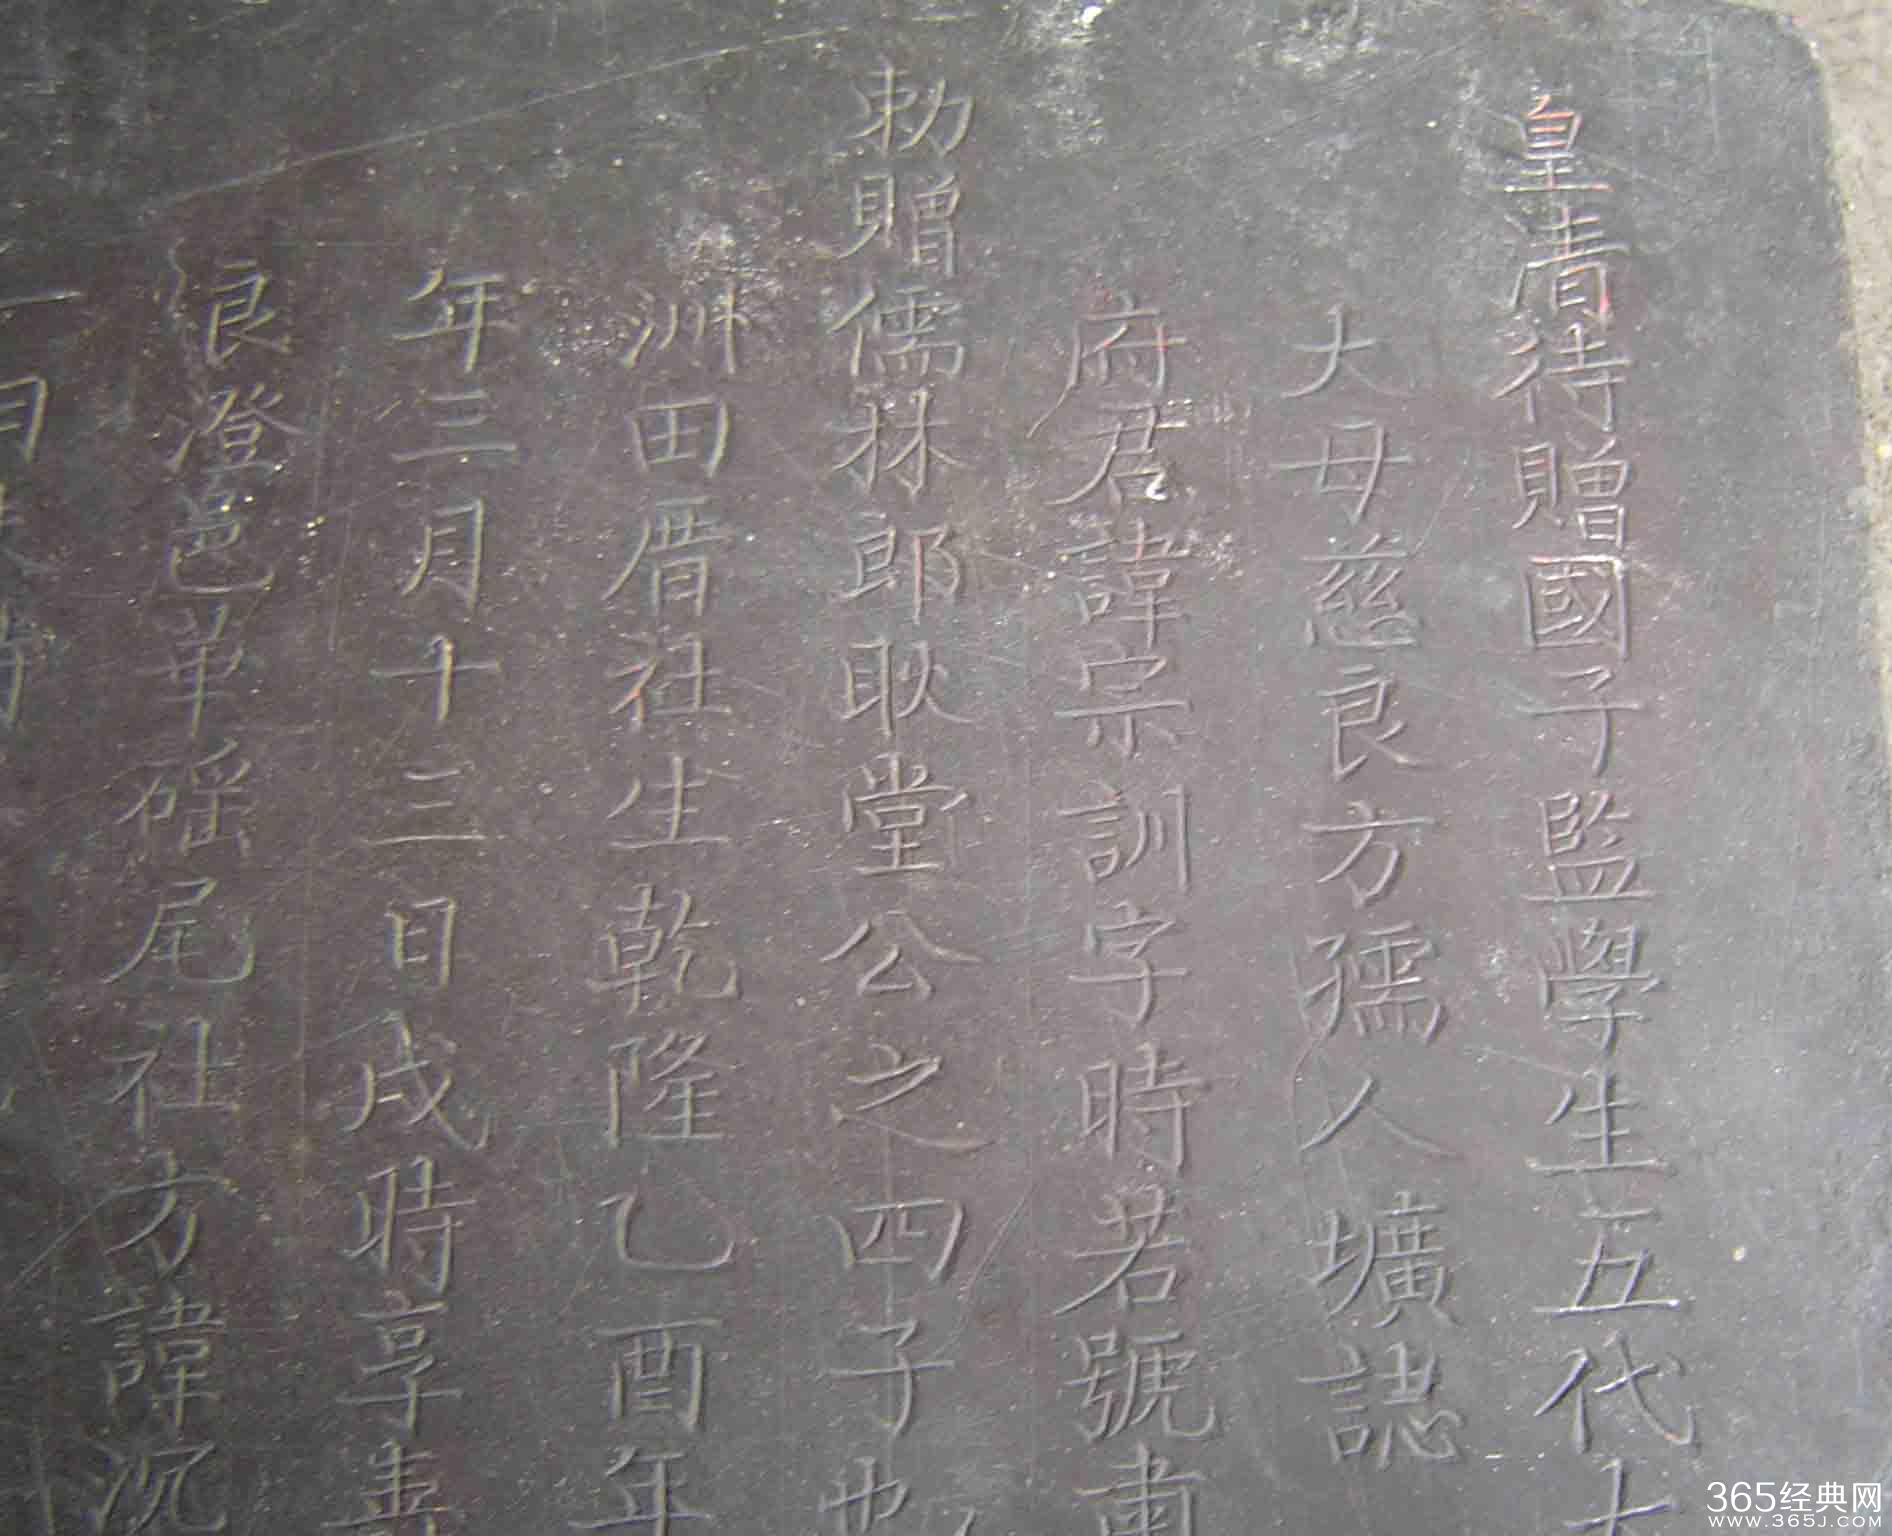 皇清待贈國子監學生五代大
大母慈良方孺人壙誌
府君諱宗訓字時若號肅
勅贈儒林郎耿堂公之四子也
洲田厝社生乾隆乙酉年
年三月十三日戌時享壽
良澄邑華瑶尾社方諱沉
一月
365经典网
WWW.365J.COM